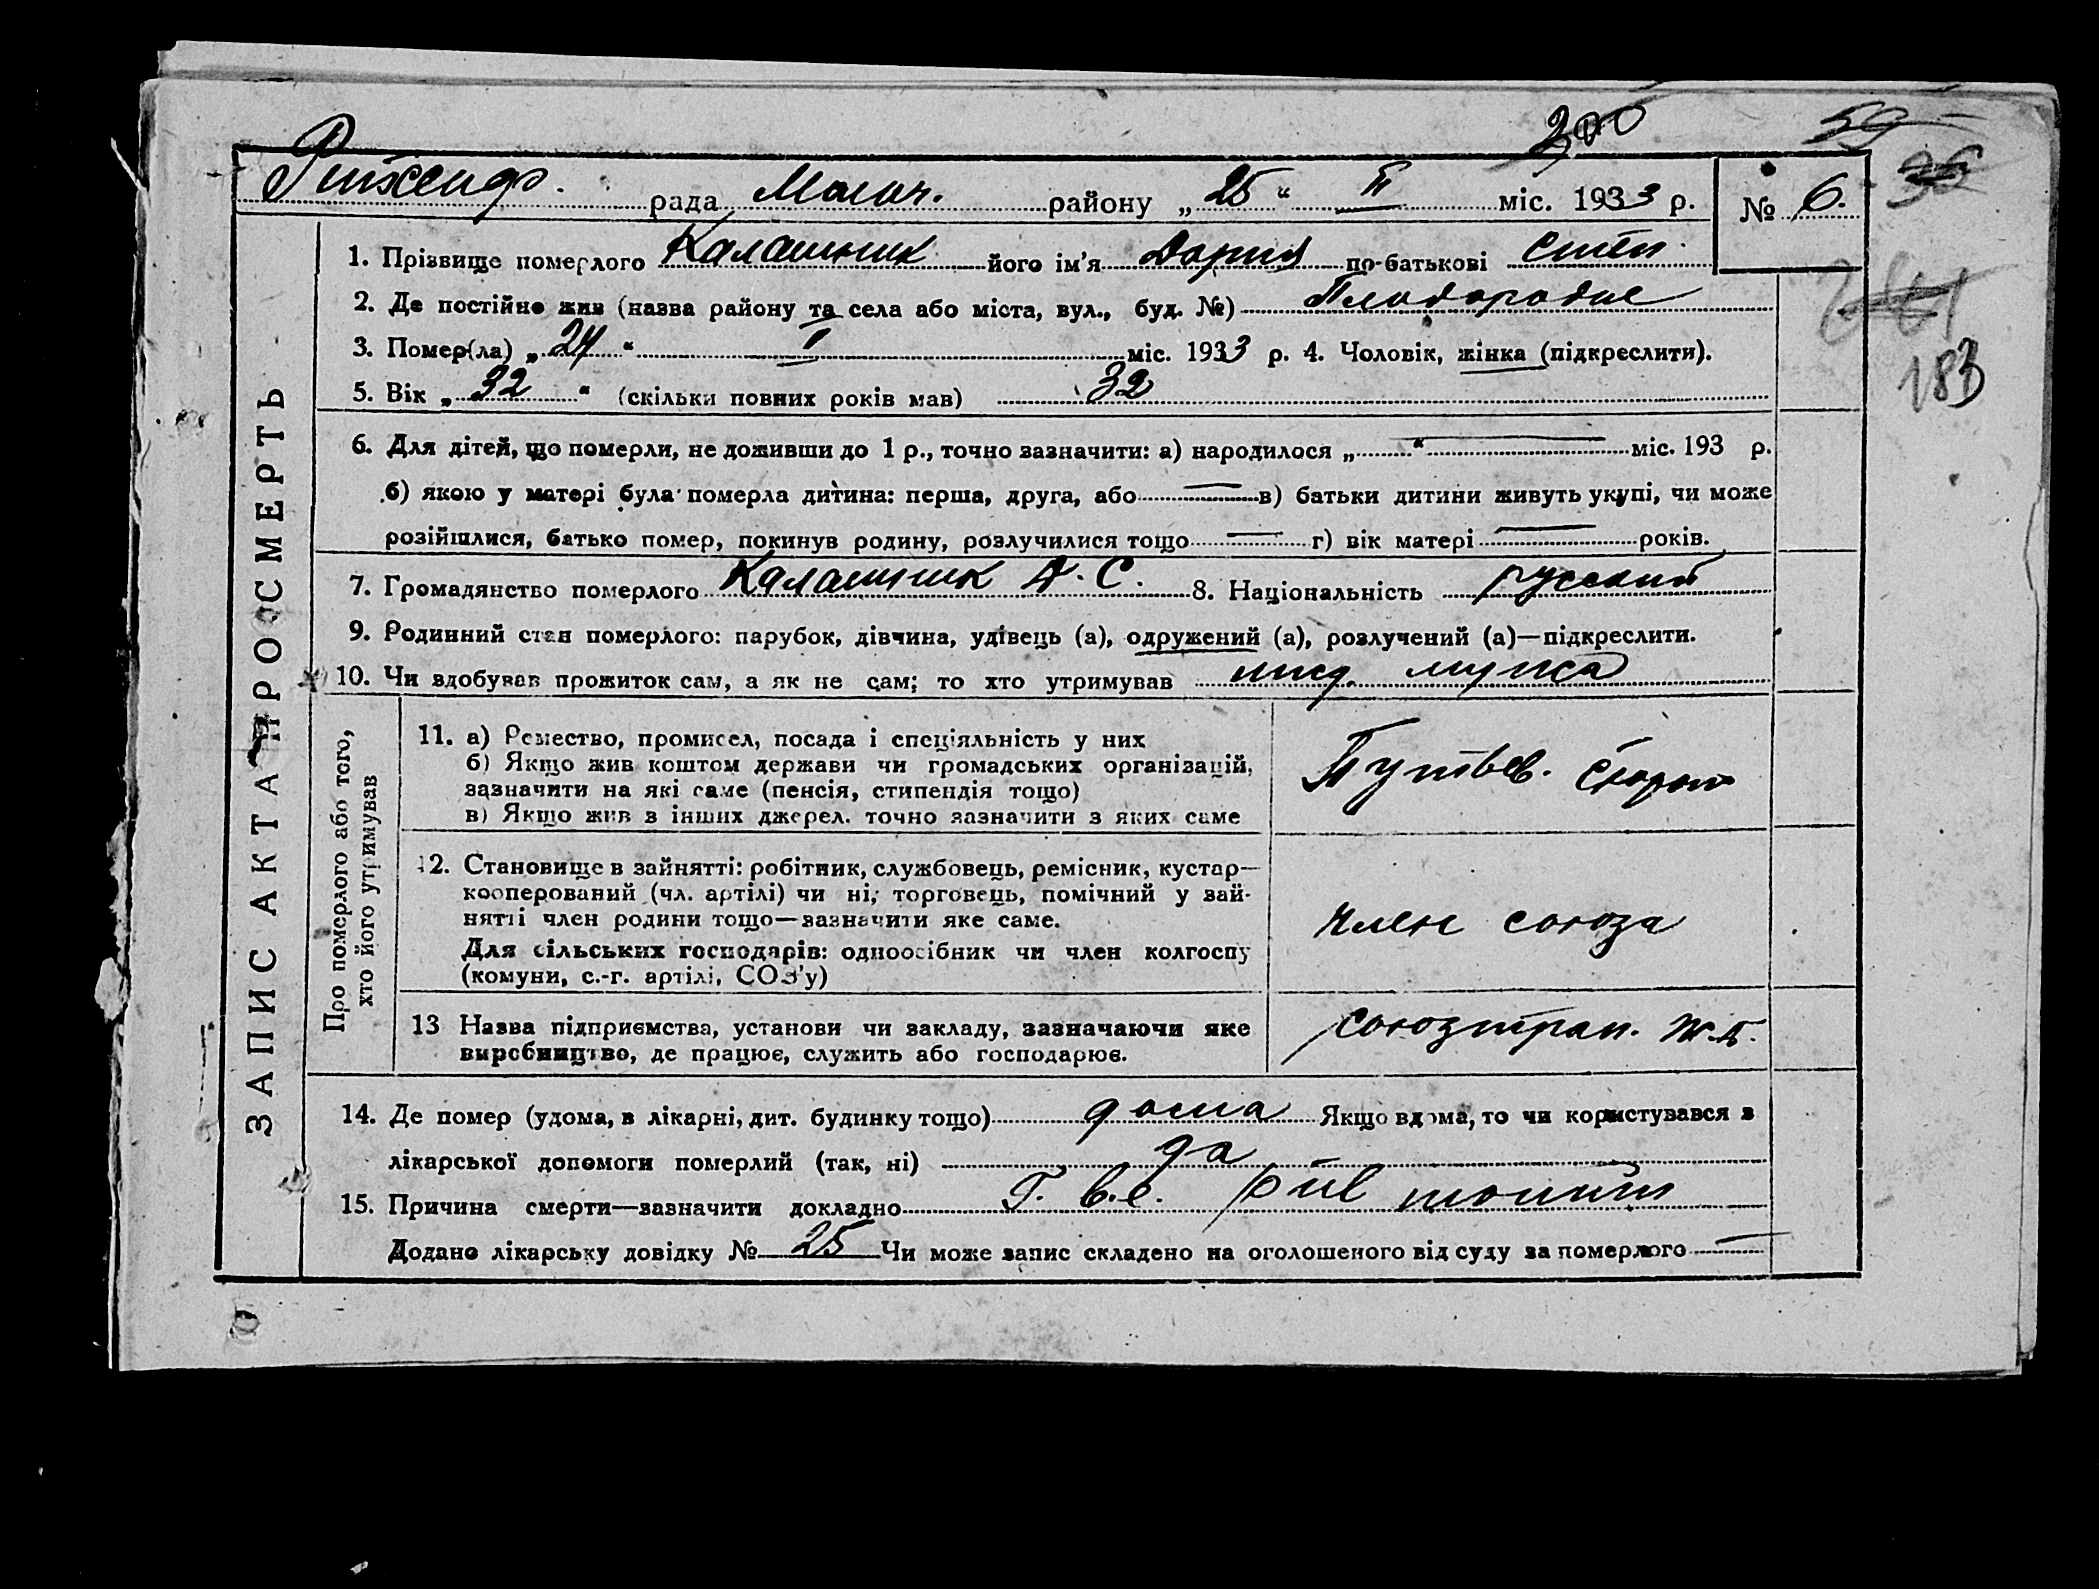 200 59
36
Рийхенф. рада Молоч. району „ 25 “ II міс. 1933 р. № 6.
1. Прізвище померлого Калашник його ім’я Дария по-батькові Степ.
2. Де постійно жив (назва району та села або міста, вул., буд. №) Плодородие
3. Помер(ла) „ 24 “ міс. 1933 р. 4. Чоловік, жінка (підкреслити).
183
5. Вік „ 32 “ (скільки повних років мав) 32
6. Для дітей, що померли, не доживши до 1 р., точно зазначити: а) народилося „ — “ — міс. 193 р.
б) якою у матері була померла дитина: перша, друга, або — в) батьки дитини живуть укупі, чи може
розійшлися, батько помер, покинув родину, розлучилися тощо — г) вік матері — років.
7. Громадянство померлого Калашник Д. С. 8. Національність русский
9. Родинний стан померлого: парубок, дівчина, удівець (а), одружений (а), розлучений (а)—підкреслити.
10. Чи здобував прожиток сам, а як не сам; то хто утримував ижд. мужа
ЗАПИС АКТА ПРО СМЕРТЬ
Про померлого або того,
хто його утримував
11. а) Ремество, промисел, посада і спеціяльність у них
б) Якщо жив коштом держави чи громадських організацій,
зазначити на які саме (пенсія, стипендія тощо)
в) Якщо жив з інших джерел. точно зазначити з яких саме
Путев. Сторож
12. Становище в зайнятті: робітник, службовець, ремісник, кустар—
кооперований (чл. артілі) чи ні; торговець, помічний у зай-
нятті член родини тощо—зазначити яке саме.
Для сільських господарів: одноосібник чи член колгоспу
(комуни, с.-г. артілі, СОЗ’у)
член союза
13 Назва підприємства, установи чи закладу, зазначаючи яке
виробництво, де працює, служить або господарює.
союзтран. Ж.Д.
14. Де помер (удома, в лікарні, дит. будинку тощо) дома Якщо вдома, то чи користувався з
лікарської допомоги померлий (так, ні) да
15. Причина смерти—зазначити докладно
Додано лікарську довідку № 25 Чи може запис складено на оголошеного від суду за померлого —